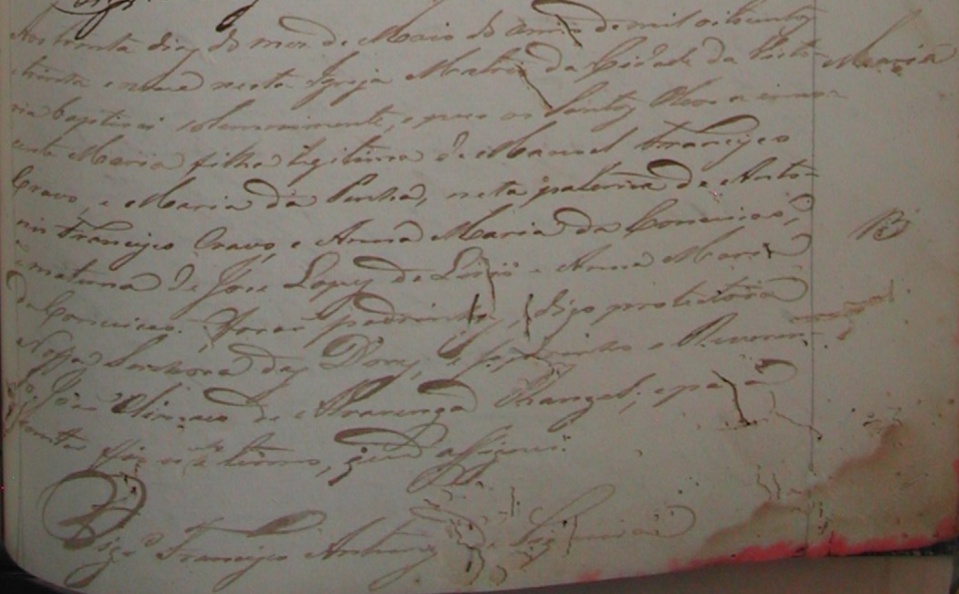 Aos trinta dias do mes de Maio do anno de mil oitocentos
trinta e nove nesta Igreja Matriz da Cidade da Victo-
Maria
ria baptizei solemnemente, e puz os Santos Oleos a inno-
cente Maria filha legitima de Manoel Francisco
Cravo, e Maria da Penha, neta paterna de Anto-
nio Francisco Cravo, e Anna Maria da Conceicao,
e materna de Jose Lopes de e Anna Maria
da Conceicao. Forao padrinhos, digo protectora
Nossa Senhora das Dores, e padrinho o Reveren-
do João de Alvarenga Rangel; e para
constar fiz este termo, que assignei.
Vigr.o Francisco Antunes de